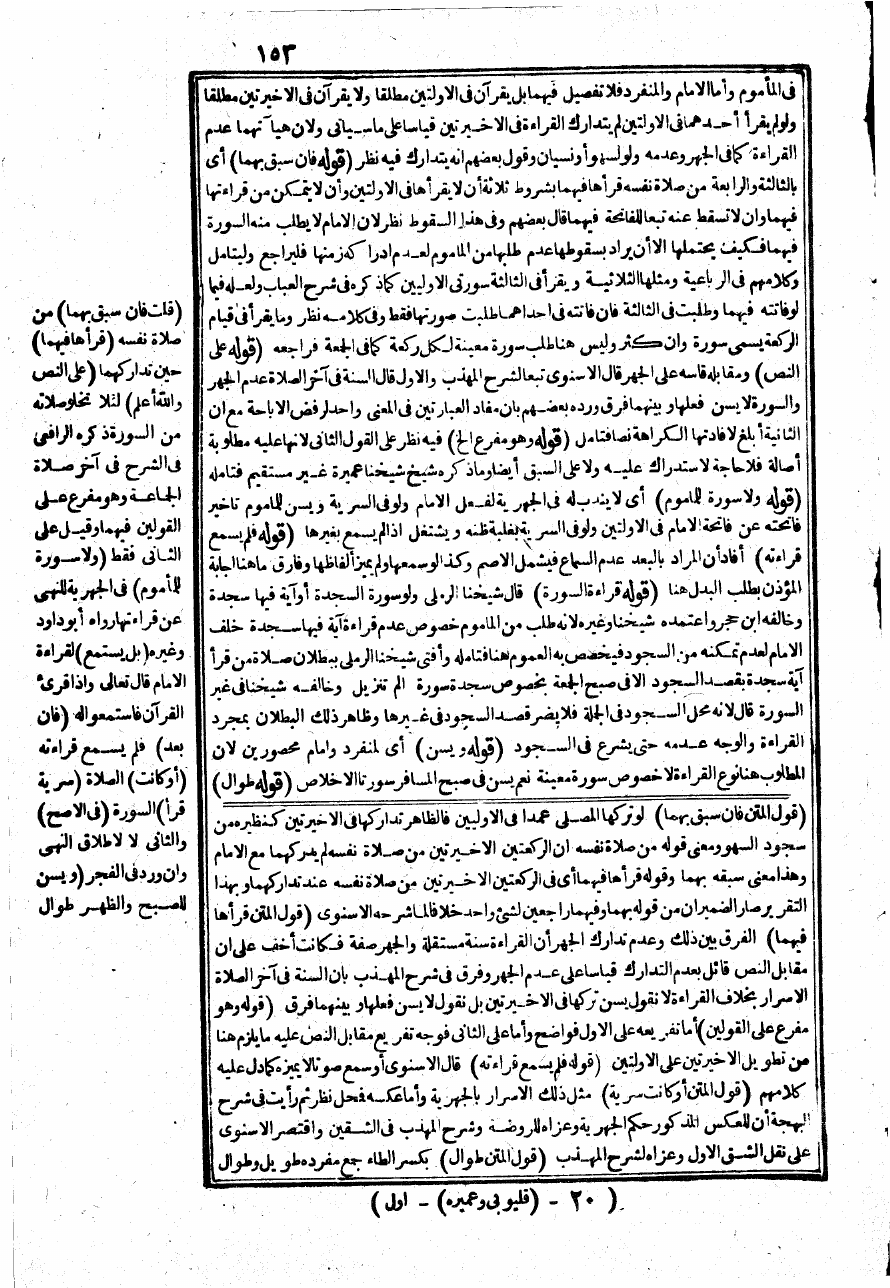 ١٥٣
فى المأموم وأما الامام والمنفرد فلا تفصيل فيهما بل يقرآن فى الاولتين مطلقا ولا يقرآن فى الاخيرتين مطلقا
ولو لم يقرأ أحدهما فى الاولتين لم يتدارك القراءة فى الاخيرتين قياسا على ماسيأتى ولان هيآتهما عدم
القراءة كما فى الجهر وعدمه ولو لسهو أو نسيان وقول بعضهم انه يتدارك فيه نظر (قوله فان سبق بهما) أى
بالثالثة والرابعة من صلاة نفسه قرأها فيهما بشروط ثلاثة أن لا يقرأها فى الاولتين وأن لا يتمكن من قراءتها
فيهما وان لا تسقط عنه تبعا للفاتحة فيهما قال بعضهم وفى هذا السقوط نظر لان الامام لا يطلب منه السورة
فيهما فكيف يحتملها الا أن يراد بسقوطها عدم طلبها من الماموم لعدم ادراكه زمنها فليراجع وليتامل
وكلامهم فى الرباعية ومثلها الثلاثية ويقرأ فى الثالثة سورتى الاوليين كما ذكره فى شرح العباب ولعله فيما
لو فاتته فيهما وطلبت فى الثالثة فان فاتته فى احداهما طلبت صورتها فقط وفى كلامه نظر وما يقرأ فى قيام
الركعة يسمى سورة وان كثر وليس هنا طلب سورة معينة لكل ركعة كما فى الجمعة فراجعه (قوله على
النص) ومقابله قاسه على الجهر قال الاسنوى تبعا لشرح المهذب والاول قال السنة فى آخر الصلاة عدم الجهر
والسورة لا يسن فعلها وبينهما فرق ورده بعضهم بان مفاد العبارتين فى المعنى واحد لرفض الاباحة مع ان
الثانية أبلغ لافادتها الكراهة نصا فتامل (قوله وهو مفرع الخ) فيه نظر على القول الثانى لانها عليه مطلوبة
أصالة فلا حاجة لاستدراك عليه ولا على السبق أيضا وما ذكره شيخ شيخنا عميرة غير مستقيم فتامله
(قوله ولا سورة للماموم) أى لا يندب له فى الجهرية لفعل الامام ولو فى السرية ويسن للماموم تاخير
فاتحته عن فاتحة الامام فى الاولتين ولو فى السرية بغلبة ظنه ويشتغل اذا لم يسمع بغيرها (قوله فلم يسمع
قراءته) أفاد أن المراد بالبعد عدم السماع فيشمل الاصم وكذا لو سمعها ولم يميز ألفاظها وفارق ما هنا اجابة
المؤذن بطلب البدل هنا (قوله قراءة السورة) قال شيخنا الرملى ولو سورة السجدة أو آية فيها سجدة
وخالفه ابن حجر واعتمده شيخنا وغيره لانه طلب من الماموم خصوص عدم قراءة آية فيها سجدة خلف
الامام لعدم تمكنه من السجود فيخص به العموم هنا فتامله وأفتى شيخنا الرملى ببطلان صلاة من قرأ
آية سجدة بقصد السجود الا فى صبح الجمعة بخصوص سجدة سورة الم تنزيل وخالفه شيخنا فى غير
السورة قال لانه محل السجود فى الجملة فلا يضر قصد السجود فى غيرها وظاهر ذلك البطلان بمجرد
القراءة والوجه عدمه حتى يشرع فى السجود (قوله ويسن) أى لمنفرد وامام محصورين لان
المطلوب هنا نوع القراءة لا خصوص سورة معينة نعم يسن فى صبح المسافر سورتا الاخلاص (قوله طوال)
(قلت فان سبق بهما) من
صلاة نفسه (قرأها فيهما)
حين تداركهما (على النص
والله أعلم) لئلا تخلو صلاته
من السورة ذكره الرافعى
فى الشرح فى آخر صلاة
الجماعة وهو مفرع على
القولين فيهما وقيل على
الثانى فقط (ولا سورة
للمأموم) فى الجهرية للنهى
عن قراءتها رواه أبو داود
وغيره (بل يستمع) لقراءة
الامام قال تعالى واذا قرئ
القرآن فاستمعوا له (فان
بعد) فلم يسمع قراءته
(أو كانت) الصلاة (سرية
قرأ) السورة (فى الاصح)
والثانى لا لاطلاق النهى
وان ورد فى الفجر (ويسن
للصبح والظهر طوال
(قول المتن فان سبق بهما) لو تركها المصلى عمدا فى الاوليين فالظاهر تداركها فى الاخيرتين كنظيره من
سجود السهو ومعنى قوله من صلاة نفسه ان الركعتين الاخيرتين من صلاة نفسه لم يدركهما مع الامام
وهذا معنى سبقه بهما وقوله قرأها فيهما أى فى الركعتين الاخيرتين من صلاة نفسه عند تداركهما وبهذا
التقرير صار الضميران من قوله بهما وفيهما راجعين لشئ واحد خلافا لما شرحه الاسنوى (قول المتن قرأها
فيهما) الفرق بين ذلك وعدم تدارك الجهر أن القراءة سنة مستقلة والجهر صفة فكانت أخف على ان
مقابل النص قائل بعدم التدارك قياسا على عدم الجهر وفرق فى شرح المهذب بان السنة فى آخر الصلاة
الاسرار بخلاف القراءة لا نقول يسن تركها فى الاخيرتين بل نقول لا يسن فعلها وبينهما فرق (قوله وهو
مفرع على القولين) أما تفريعه على الاول فواضح وأما على الثانى فوجه تفريع مقابل النص عليه ما يلزم هنا
من تطويل الاخيرتين على الاولتين (قوله فلم يسمع قراءته) قال الاسنوى أو سمع صوتا لا يميزه كما دل عليه
كلامهم (قول المتن أو كانت سرية) مثل ذلك الاسرار بالجهرية وأما عكسه فمحل نظر ثم رأيت فى شرح
البهجة أن للعكس المذكور حكم الجهرية وعزاه للروضة وشرح المهذب فى الشقين واقتصر الاسنوى
على نقل الشق الاول وعزاه لشرح المهذب (قول المتن طوال) بكسر الطاء جمع مفرده طويل وطوال
(٢٠ - (قليوبى وعميره) - اول)